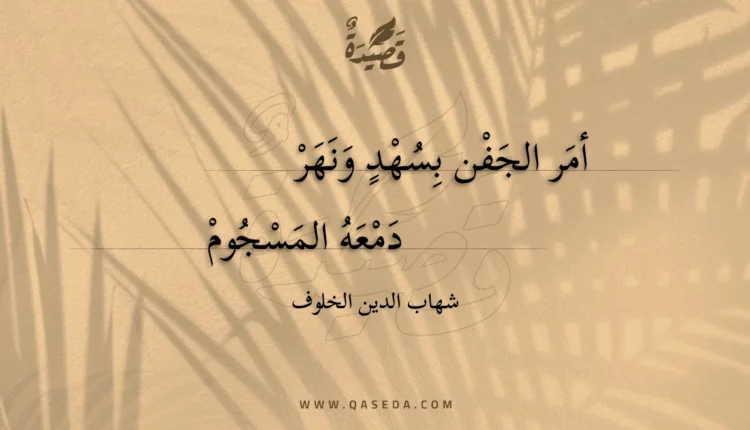 قَصِيدَةٌ
أمَر الجَفْن بِسُهْدٍ وَنَهَرْ
دَمْعَهُ المَسْجُومْ
شهاب الدين الخلوف
WWW.QASEDA.COM